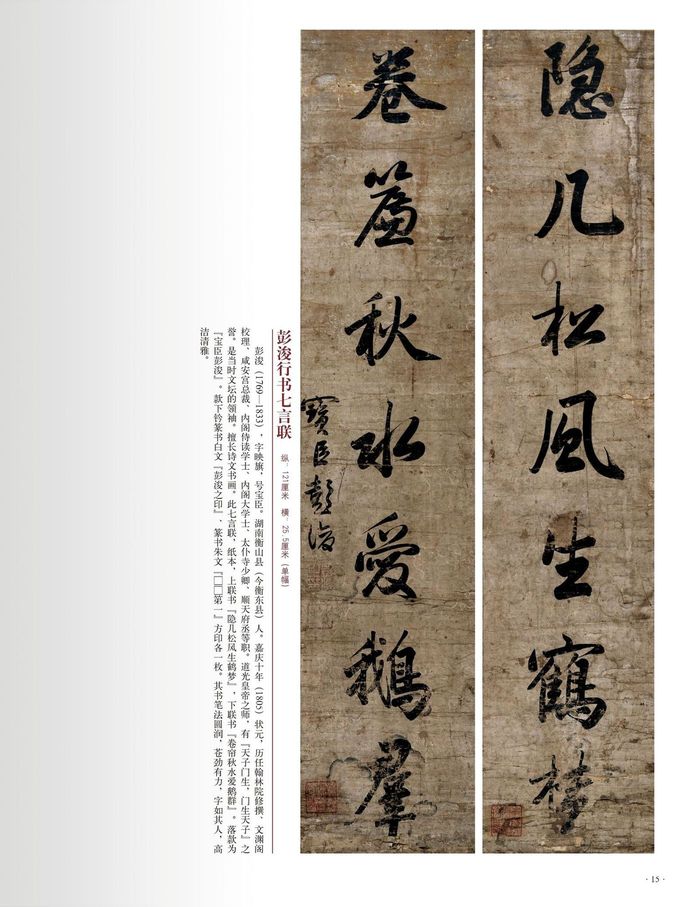 隐几松風生鶴梦
卷簾秋水愛鵝羣
寳臣彭浚
彭浚行书七言联
纵：121厘米 横：25.5厘米（单幅）
彭浚（1769—1833），字映旟，号宝臣。湖南衡山县（今衡东县）人，嘉庆十年（1805）状元，历任翰林院修撰、文渊阁
校理、咸安宫总裁、内阁侍读学士、内阁大学士、太仆寺少卿、顺天府丞等职。道光皇帝之师，有『天子门生，门生天子』之
誉。是当时文坛的领袖。擅长诗文书画。此七言联，纸本，上联书『隐几松风生鹤梦』，下联书『卷帘秋水爱鹅群』。落款为
『宝臣彭浚』。款下钤篆书白文『彭浚之印』、篆书朱文『□□第一』方印各一枚。其书笔法圆润，苍劲有力，字如其人，高
洁清雅。
· 15 ·